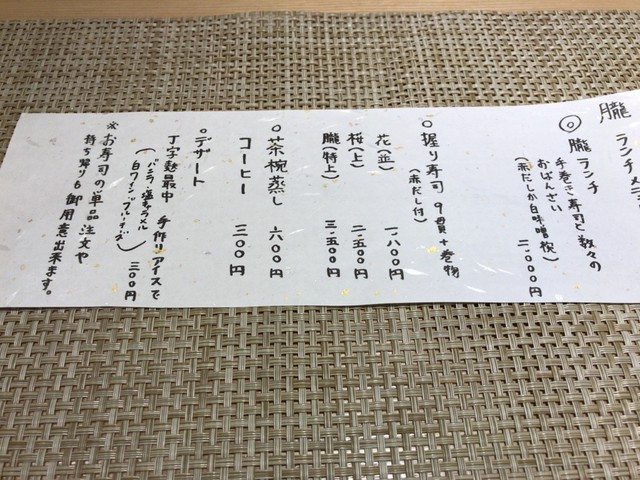 朧 ランチメニ
◎ 朧ランチ
手巻き寿司と数々の
おばんざい
(赤だしか白味噌椀)
二、〇〇〇円
○握り寿司 9貫+巻物
(赤だし付)
花(並) 一、八〇〇円
桜(上) 二、五〇〇円
朧(特上) 三、五〇〇円
○茶椀蒸し 六〇〇円
コーヒー 三〇〇円
○デザート
丁字麸最中 手作りアイスで
(バニラ・塩キャラメル
白ワイン・ブルーチーズ) 三〇〇円
※お寿司の単品注文や
持ち帰りも御用意出来ます。